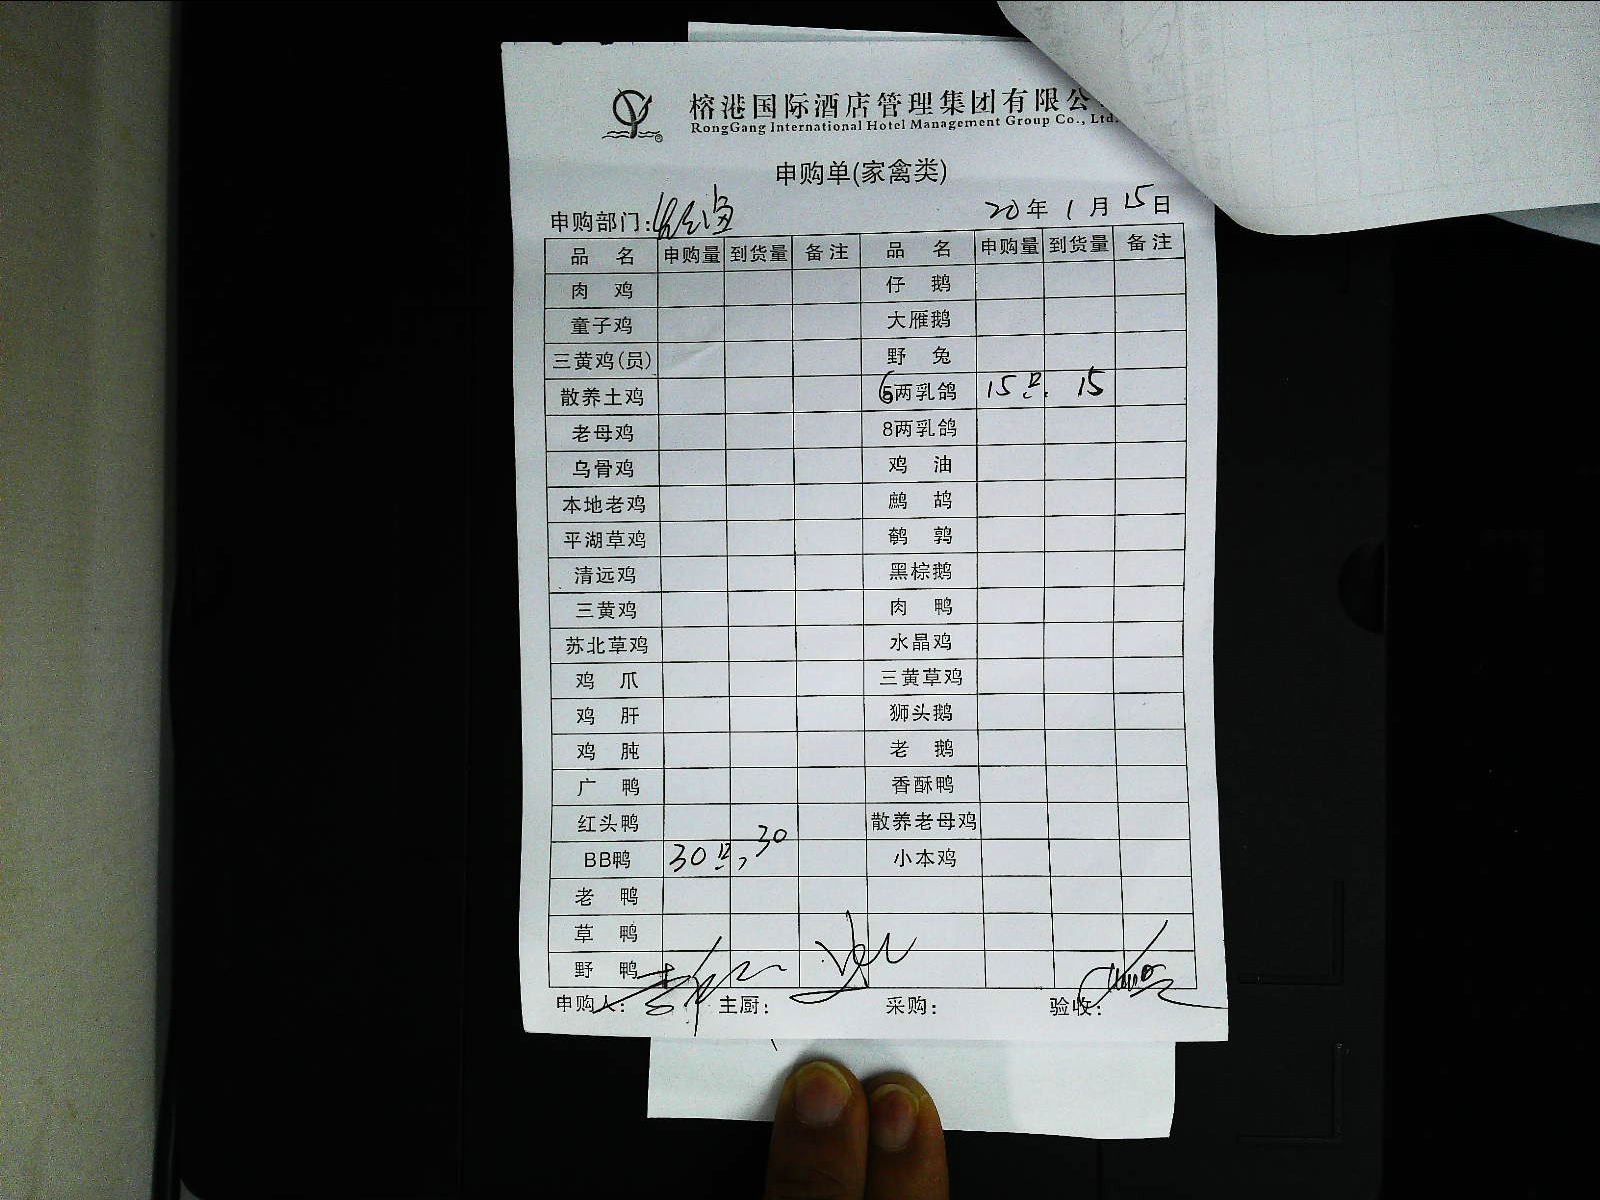 榕港国际酒店管理集团有限公
RongGang International Hotel Management Group Co., Ltd.
申购单(家禽类)
申购部门: 20年1月15日
品 名 申购量 到货量 备注 品 名 申购量 到货量 备注
肉 鸡 仔 鹅
童子鸡 大雁鹅
三黄鸡(员) 野 兔
散养土鸡 6两乳鸽 15只. 15
老母鸡 8两乳鸽
乌骨鸡 鸡 油
本地老鸡 鹧 鸪
平湖草鸡 鹌 鹑
清远鸡 黑棕鹅
三黄鸡 肉 鸭
苏北草鸡 水晶鸡
鸡 爪 三黄草鸡
鸡 肝 狮头鹅
鸡 肫 老 鹅
广 鸭 香酥鸭
红头鸭 散养老母鸡
BB鸭 30只, 30 小本鸡
老 鸭
草 鸭
野 鸭
申购人: 主厨: 采购: 验收: